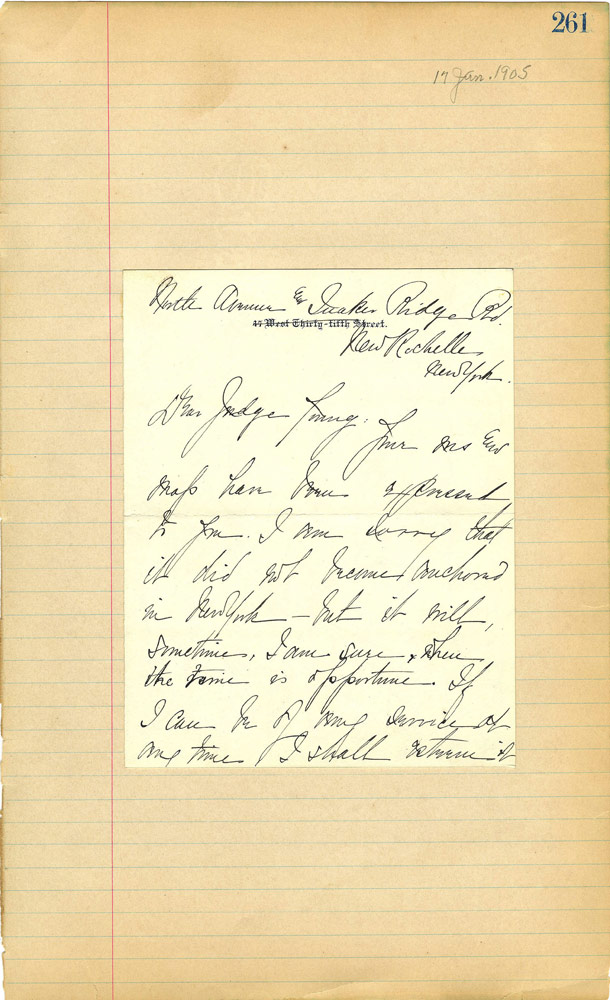 261
17 Jan. 1905
North Avenue & Quaker Ridge Rd.
47 West Thirty-fifth Street.
New Rochelle
New York.
Dear Judge Young:
Your ms and
maps have been expressed
to you. I am sorry that
it did not become anchored
in New York – but it will,
sometime, I am sure, when
the time is opportune. If
I can be of any service at
any time I shall esteem it